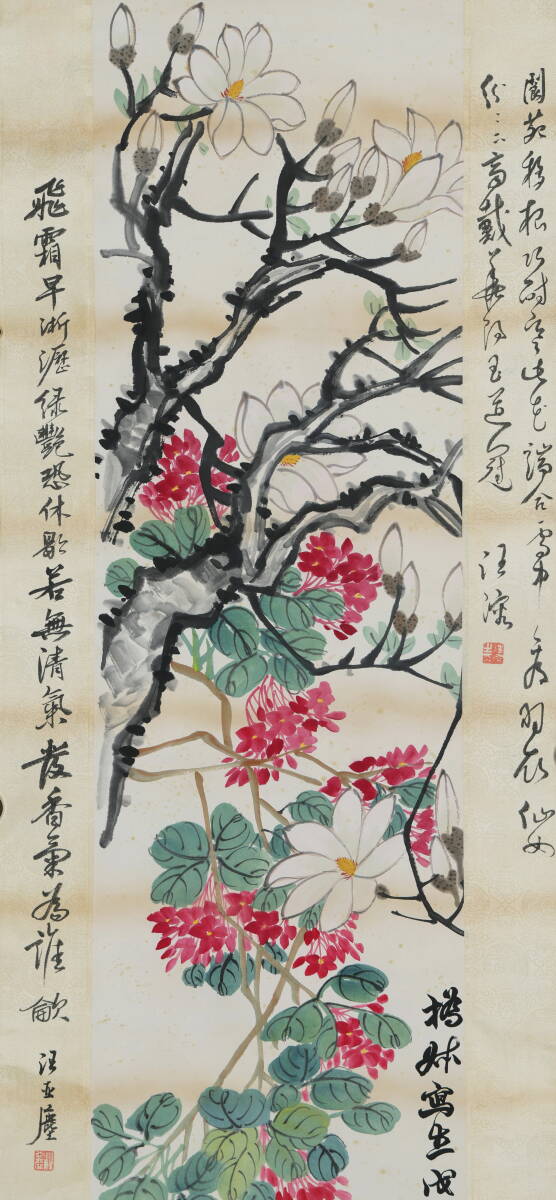 閬苑移根巧耐寒此花端合雪中看羽衣仙女
紛紛高戴並頭玉道冠
汪溶
飛霜早淅瀝綠艷恐休歇若無清氣發香氣為誰歇
汪亞塵
寫生